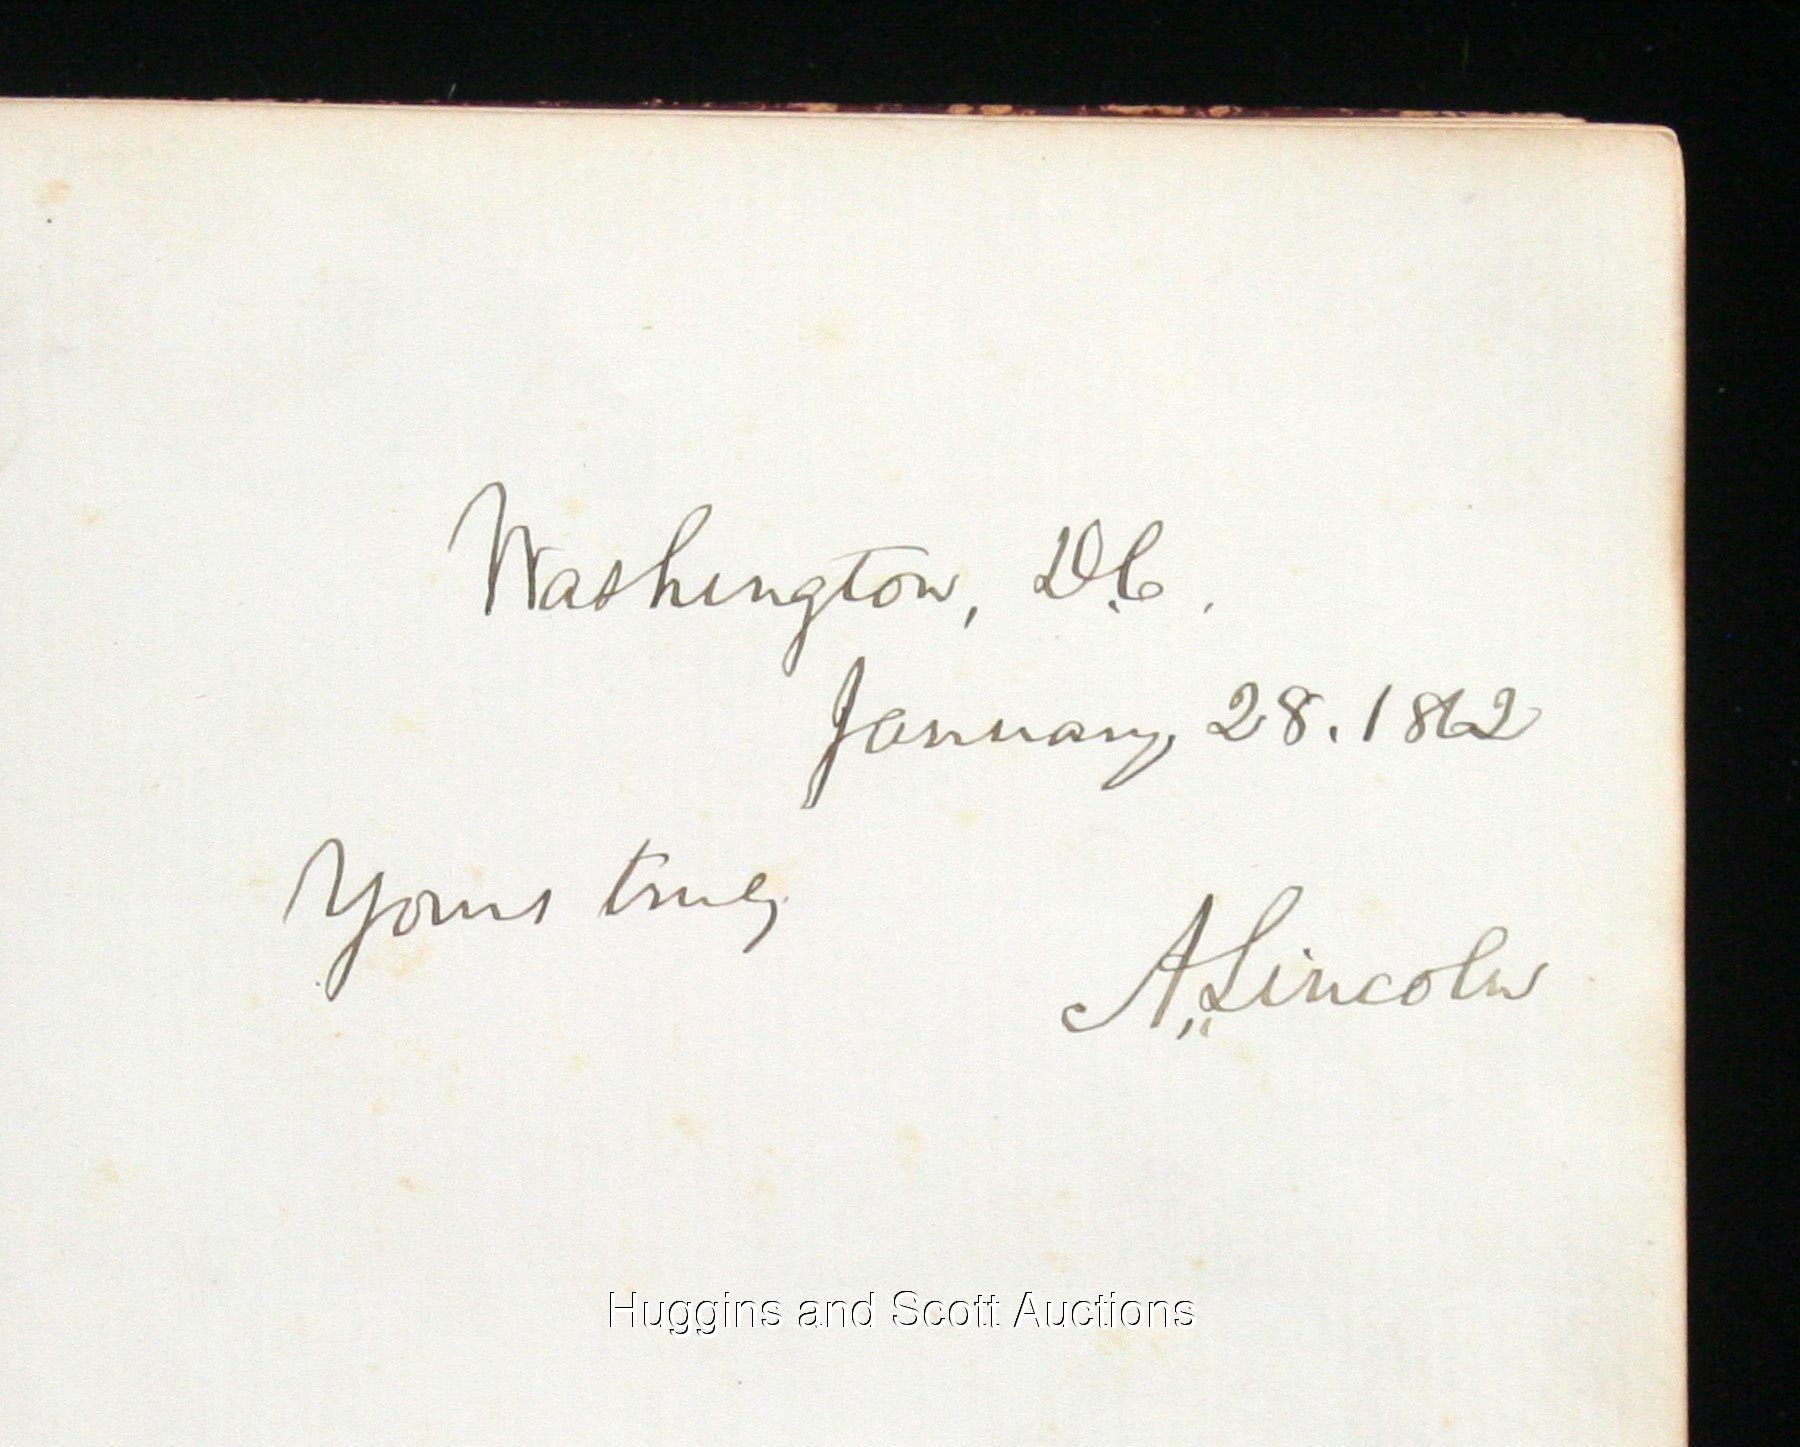 Washington, D.C.
January, 28. 1862
Yours truly
A. Lincoln
Huggins and Scott Auctions